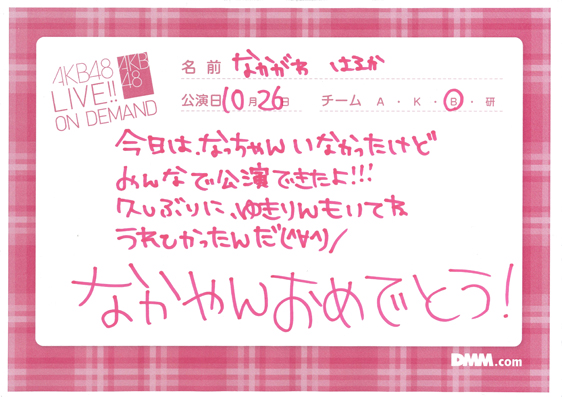 AKB48
LIVE!!
ON DEMAND
AKB
48
名前 なかがわ はるか
公演日10月26日 チーム A・K・B・研
今日は、なっちゃんいなかったけど
みんなで公演できたよ!!!
久しぶりに、ゆきりんもいてね
うれしかったんだ(^∀^)/
なかやんおめでとう!
DMM.com